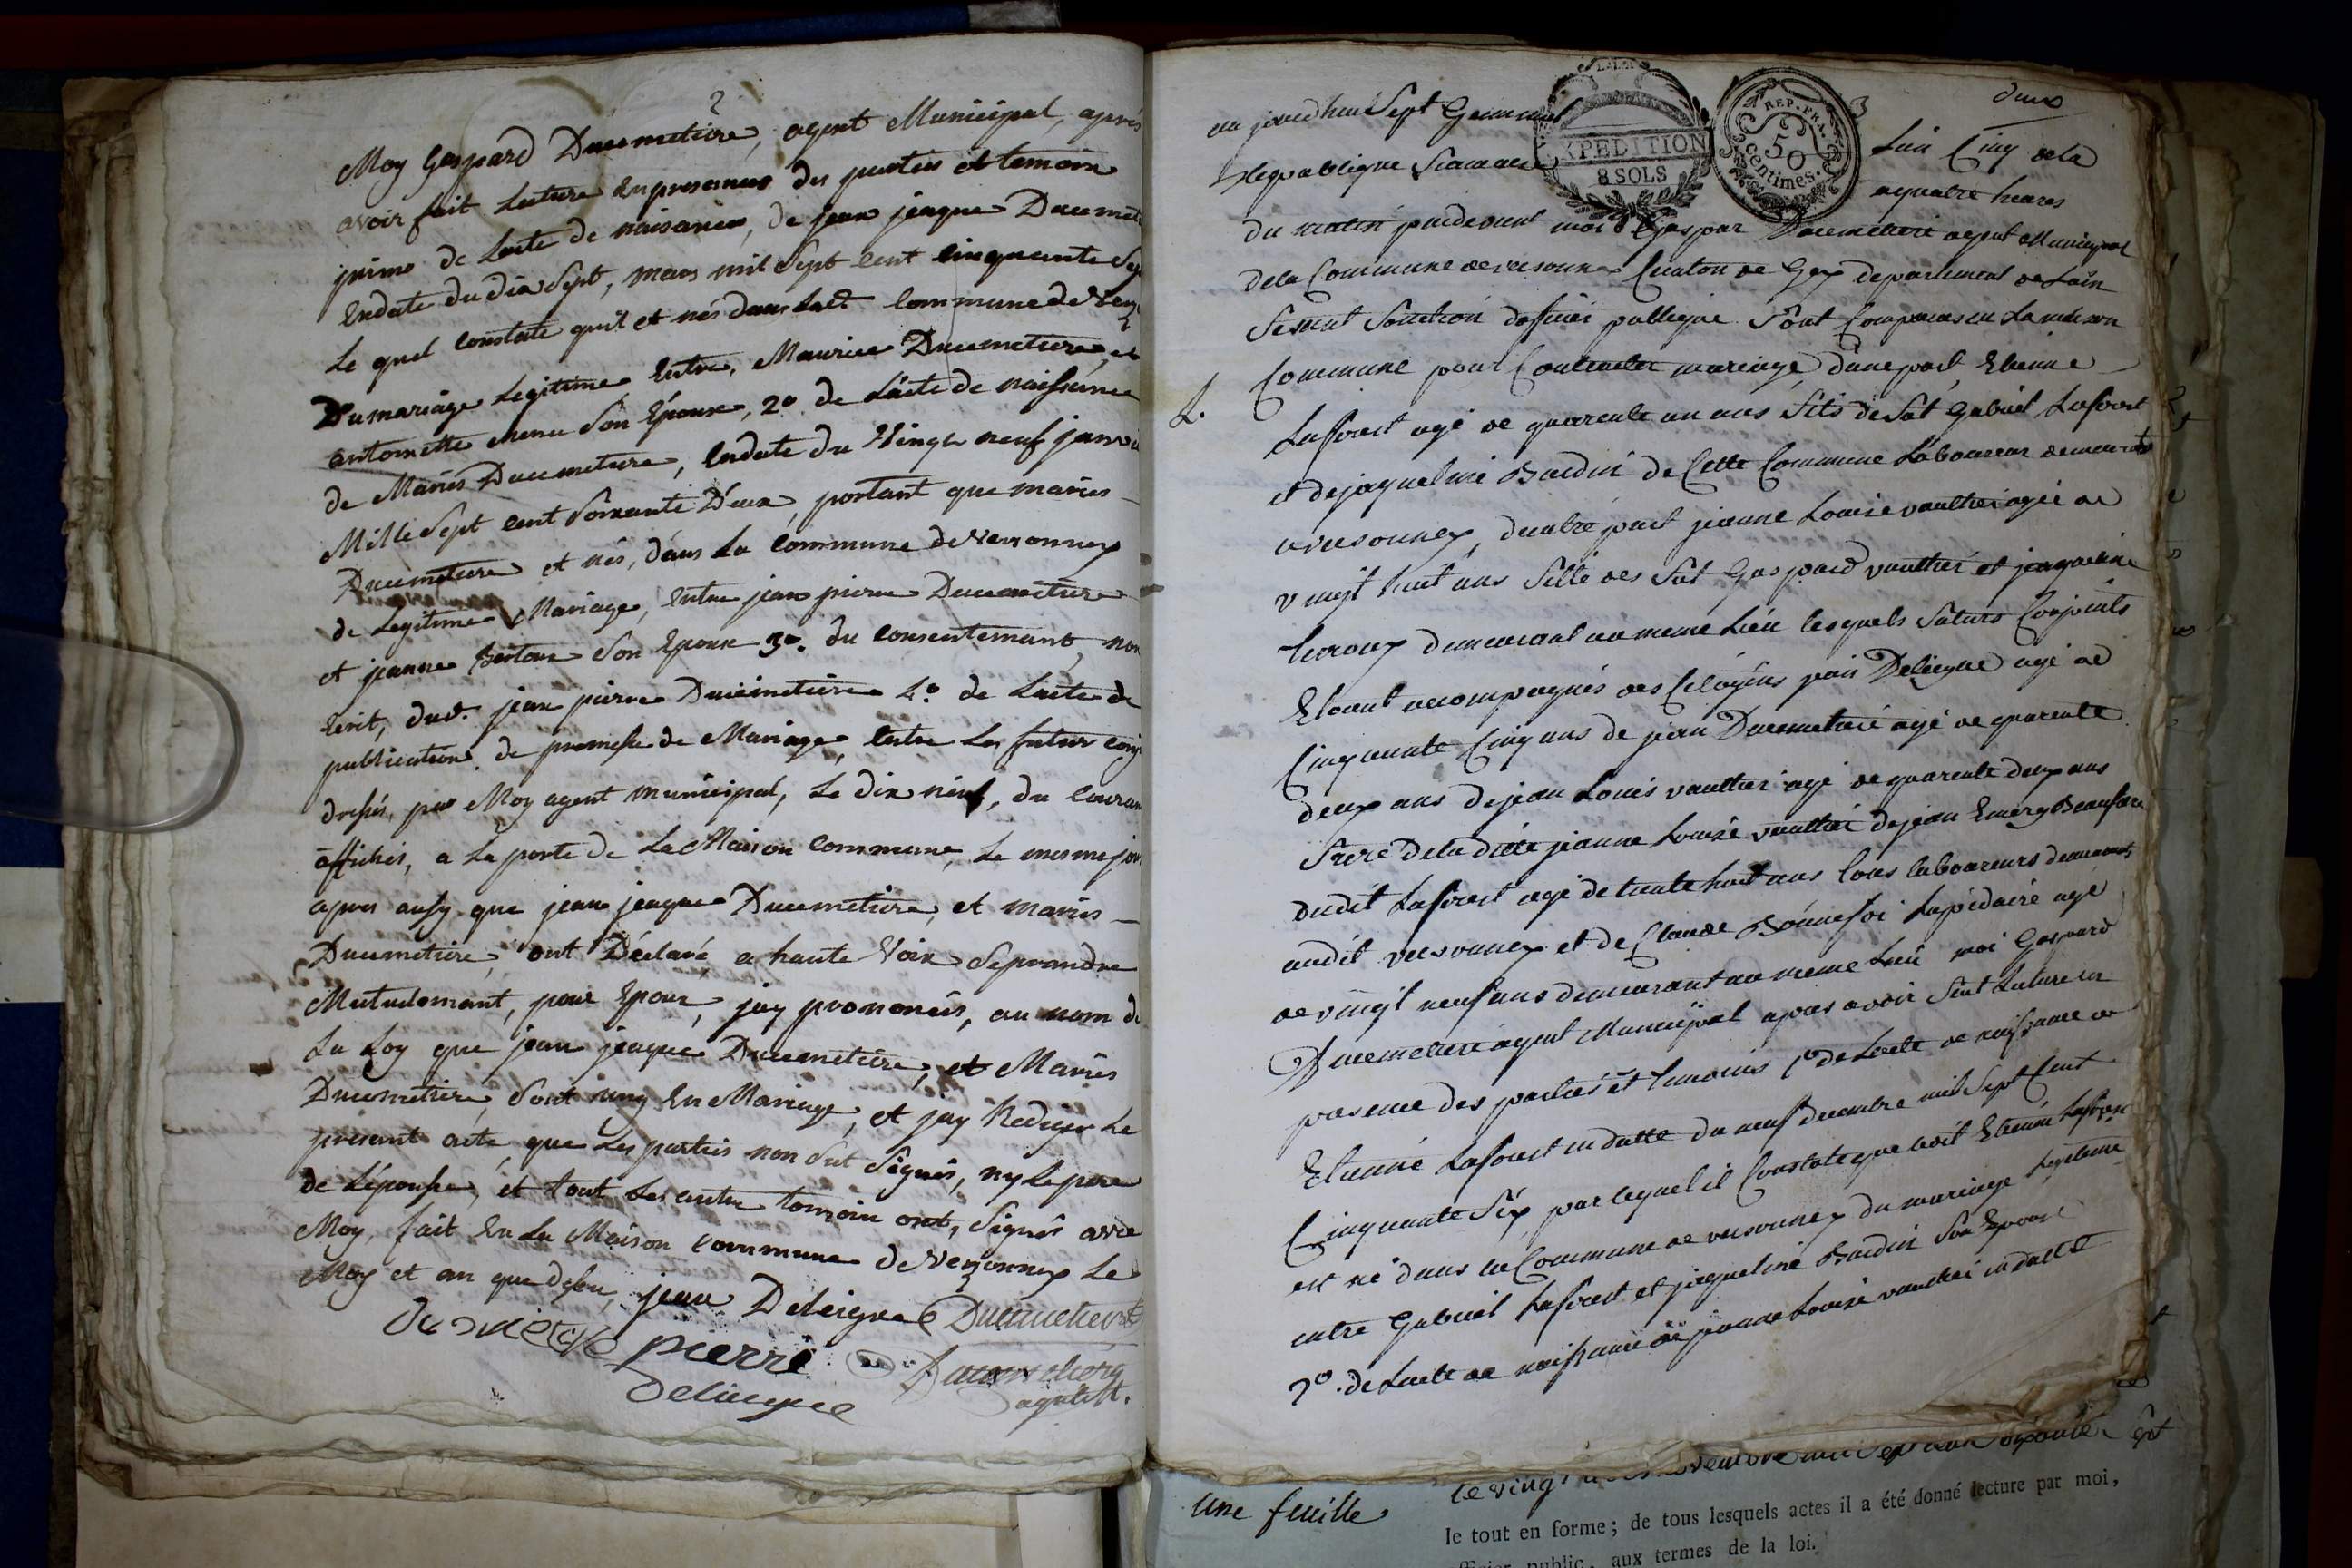 2
Moy Gaspard Ducimetiere, agent Municipal, après
avoir fait Lecture En presences des parties et temoins
primo de Lacte de naisances, de jean jeaque Ducimet
Endate du dix Sept, mars mil Sept cent cinquante Sep
Le quel constate quil et nés dans lad. Commune de Verz
Du mariage Legitime Entre, Maurice Ducimetiere, et
antoinette menu Son Epouse, 2º. de Lacte de naissance
de Maries Ducimetiere, Endate du Vingt neuf janvi
Mille Sept cent Soixante Deux, portant que maries
Ducimetiere et nés, dans La Commune de Versonnex
de Legitime Mariage, Entre jean pierre Ducimetiere
et jeanne Son Epouse 3º. du consentement, non
Ecrit, dud. jean pierre Ducimetiere 4º. de Lacte de
publication de promesse de Mariage, Entre Les futur conj
dressés, par Moy agent municipal, Le dix neuf, du couran
affichés, a La porte de La Maison commune, Le mesme jou
apres ausy que jean jeaque Ducimetiere, et maries
Ducimetiere, ont Déclaré a haute Voix Seprendre
Mutuelemant, pour Epoux, jay prononcés, au nom de
La Loy que jean jeaque Ducimetiere, et Maries
Ducimetiere, Sont uny En Mariage, et jay Rediger Le
present acte, que Les parties non ont Signés, ny Le pere
de Lépouse, et tout Les autre temoin ont, Signés avec
Moy, fait En La Maison commune de Versonnex Le
Moy et an que desu, jean Deleigue Ducimetiere
pierre
Deleigue
Ducimetiere
agent M.
deux
3
EXPEDITION
8 SOLS
REP. FRA.
50
centimes.
au jourdhui Sept Germinal Lan Cinq dela
Republique francaise aquatre heures
du matin pardevant moi Gaspar Ducimetiere agent Municipal
dela Commune de versonnex Canton de Gex departement de Lain
fesant fonction doficier publique Sont Comparus en La maison
Commune pour Contracter mariage, dune part Etienne
L.
Laforest agé de quarente un ans fils de feu Gabriel Laforest
et dejaqueline Bardin de Cette Commune Laboureur demeurant
a versonnex, dautre part jeanne Louise vauthier agée de
vingt huit ans fille des fut Gaspard vauthier et jaqueline
demeurant au meme Lieu lesquels futurs Conjoints
Etoient accompagnés des Citoyens pair Deleigue agé de
Cinquante Cinq ans de jean Ducimetiere agé de quarente
deux ans dejean Louis vauthier agé de quarente deux ans
frere dela dite jeanne Louise vauthier dejean Emery Beaufrere
dudit Laforest agé de trente huit ans tous laboureurs demeurants
audit versonnex et de Claude Bonnefoi Lapidaire agé
de vingt neuf ans demeurant au meme Lieu moi Gaspard
Ducimetiere agent Municipal apres avoir fait Lecture en
presence des parties et temoins 1º de Lacte de naissance de
Etienne Laforest en datte du neuf decembre mil Sept Cent
Cinquante Six par lequel il Constate que Etienne Laforest
est né dans la Commune de versonnex du mariage legitime
entre Gabriel Laforest et jaqueline Bardin Son Epouse
2º. de Lacte de naissance de jeanne Louise vauthier en datte
une feuille
le tout en forme; de tous lesquels actes il a été donné lecture par moi,
officier public, aux termes de la loi.